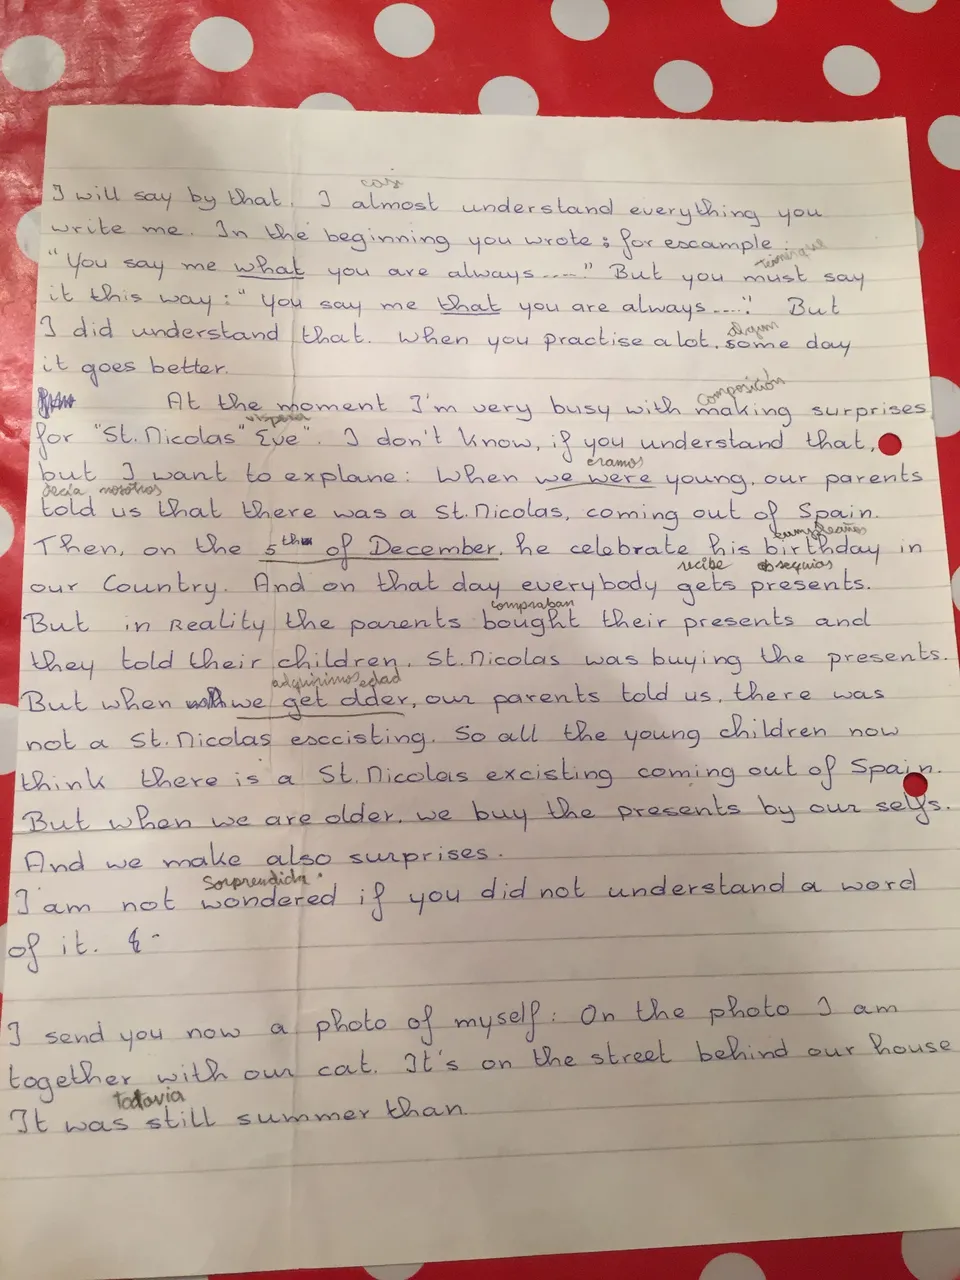 casi
I will say by that. I almost understand everything you
write me. In the beginning you wrote; for escample:
tienes que
"You say me what you are always....." But you must say
it this way: "You say me that you are always....." But
algún
I did understand that. When you practise a lot, some day
it goes better.
composición
At the moment I'm very busy with making surprises
vispera
for "St. Nicolas" "Eve". I don't know, if you understand that,
eramos
but I want to explane: When we were young, our parents
decía nosotros
told us that there was a St. Nicolas, coming out of Spain.
cumpleaños
Then, on the 5th of December, he celebrate his birthday in
recibe obsequios
our Country. And on that day everybody gets presents.
compraban
But in Reality the parents bought their presents and
they told their children, St. Nicolas was buying the presents.
adquirimos edad
But when we get older, our parents told us, there was
not a St. Nicolas esccisting. So all the young children now
think there is a St. Nicolas excisting coming out of Spain.
But when we are older, we buy the presents by our selfs.
And we make also surprises.
Sorprendida
I am not wondered if you did not understand a word
of it.
I send you now a photo of myself: On the photo I am
together with our cat. It's on the street behind our house
todavia
It was still summer than.